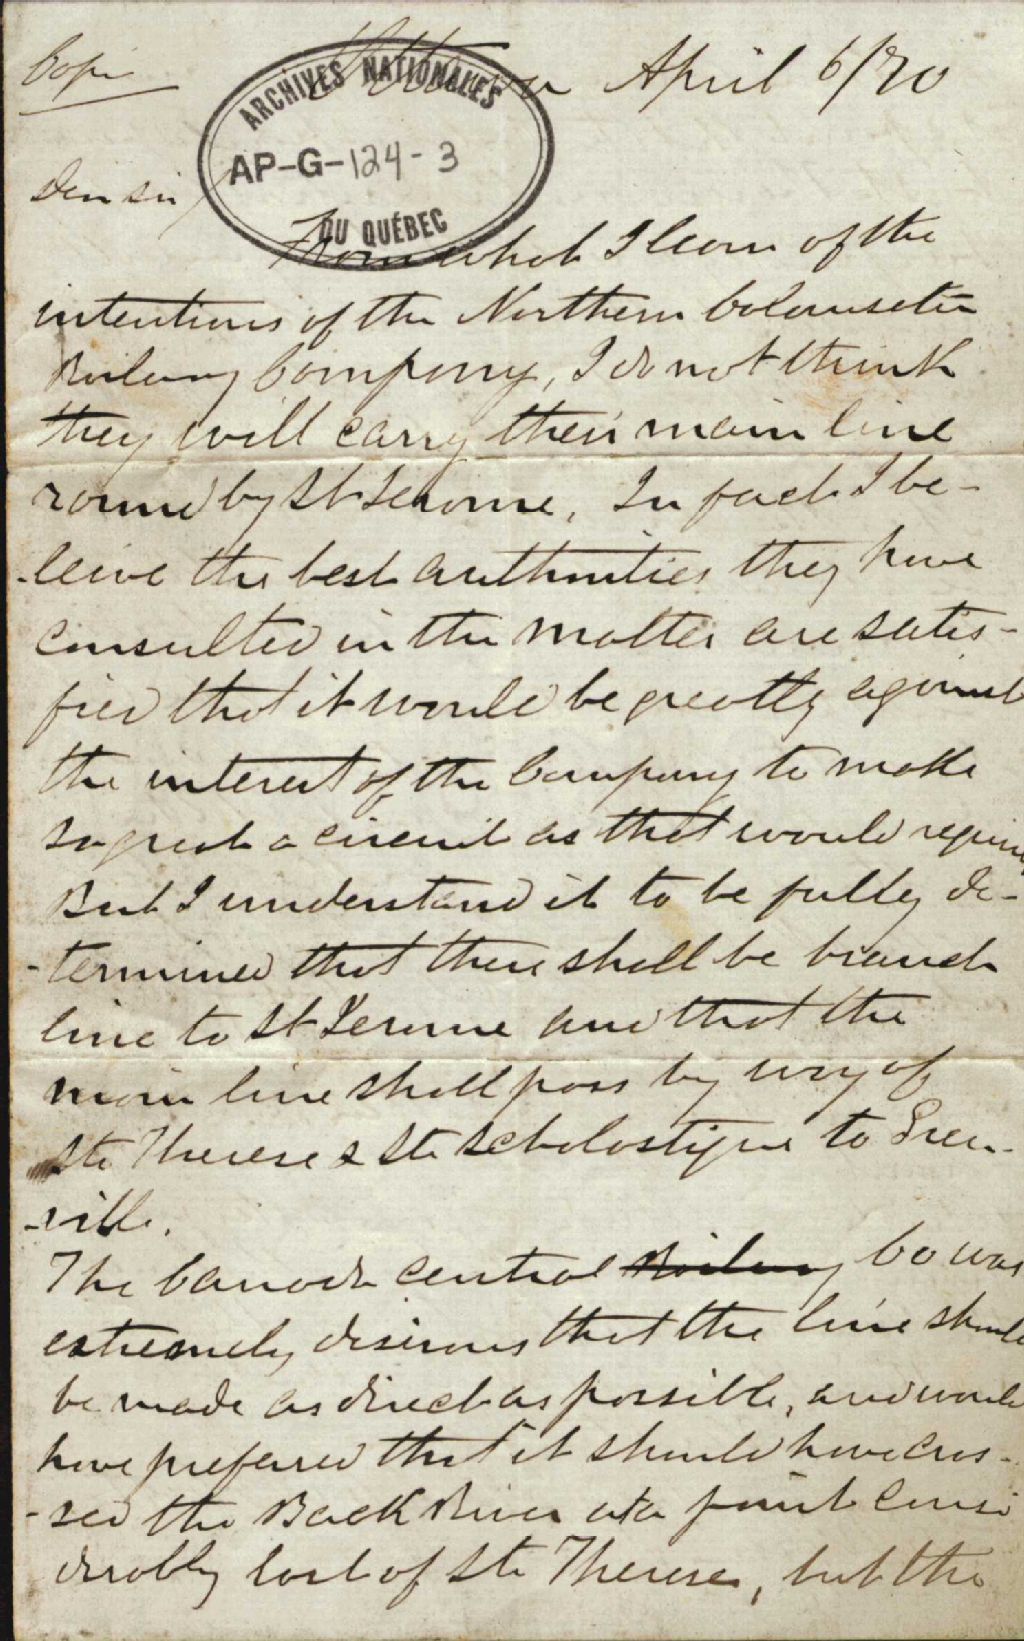 Copie
Ottawa April 6/70
ARCHIVES NATIONALES
AP-G-124-3
DU QUÉBEC
Dear sir,
From what I learn of the
intentions of the Northern Colonisation
Railway Company, I do not think
they will carry their main line
round by St Jerome, In fact I be-
-leive the best authorities they have
consulted in the matter are satis-
fied that it would be greatly against
the interest of the Company to make
so great a circuit as that would require
But I understand it to be fully de-
-termined that there shall be branch
line to St Jerome and that the
main line shall pass by way of
Ste Therese & Ste Scholastique to Gren-
-ville.
The Canada central Railway Co was
extremely desirous that the line should
be made as direct as possible, and would
have preferred that it should have cros-
-sed the Back River at a point consi
derably East of Ste Therese, but the